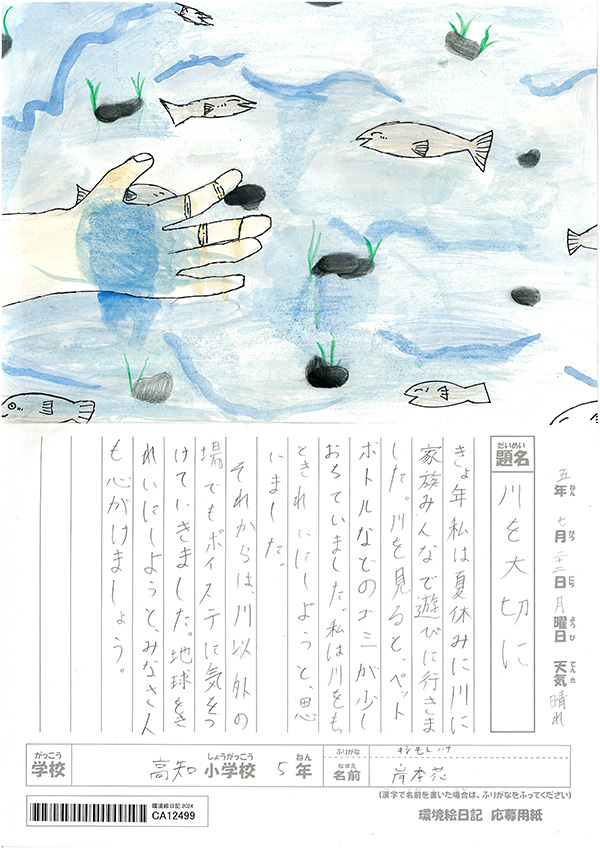 五年 七月二十二日 月曜日 天気 晴れ
ねん がつ にち ようび てんき
だいめい
題名
川を大切に
きょ年私は夏休みに川に
家族みんなで遊びに行きま
した。川を見ると、ペット
ボトルなどのゴミが少し
おちていました。私は川をもっ
ときれいにしようと、思
いました。
それからは、川以外の
場でもポイステに気をつ
けていきました。地球をき
れいにしようと、みなさん
も心がけましょう。
がっこう しょうがっこう ねん ふりがな
学校 高知 小学校 5年
なまえ
名前 岸本花
(漢字で名前を書いた場合は、ふりがなをふってください)
環境絵日記2024
CA12499
環境絵日記 応募用紙